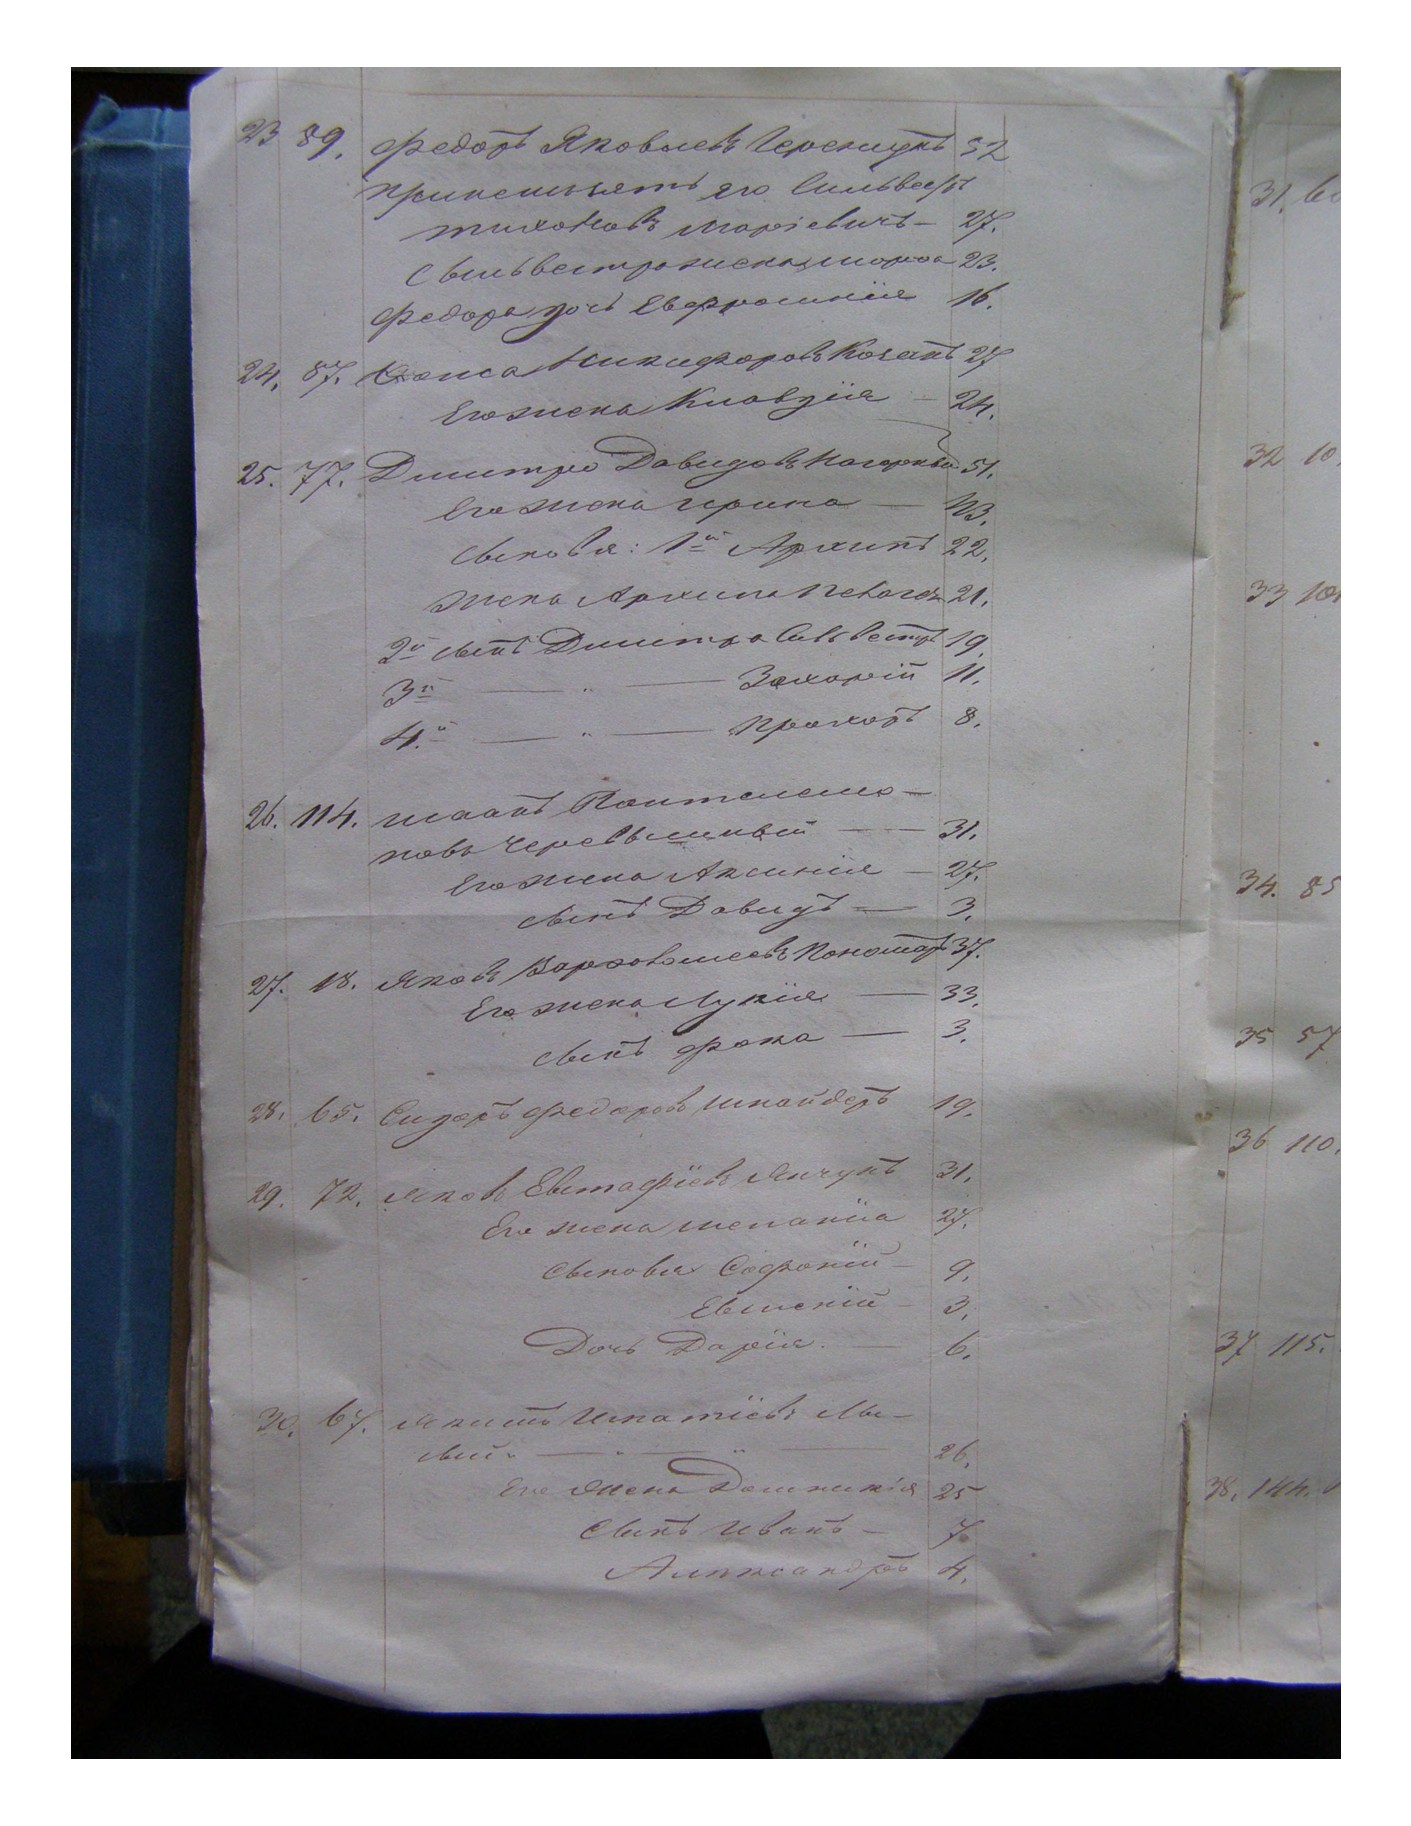 23 89. Федоръ Яковлевъ Черенщукъ 52
принемлетъ его Сильвестръ
Тихоновъ Маріевичъ — 27.
Сыльвестра жена Марфа 23.
Федора дочь Евфросинія 16.
24. 87. Фома Никифоровъ Козакъ 27
Его жена Клавдія — 24.
25. 77. Дмитро Давидовъ 51.
Его жена Ирина — 43.
Сыновья: 1й Архипъ 22.
Жена Архипа Пелагея 21.
2й сынъ Дмитра Сильвестръ 19.
3й — " — Захарій 11.
4.й — " — Прохоръ 8.
26. 114. Иоанъ Пантелемо-
новъ — 31.
Его жена Аксинія — 27.
сынъ Давидъ — 3.
27. 18. Яковъ Варфоломеевъ Пономаръ 37.
Его жена Лукія — 33.
сынъ Фока — 3.
28. 65. Сидоръ Федоровъ Шнайдеръ 19.
29. 72. Яковъ Евстафіевъ Янчукъ 31.
Его жена Меланія 27.
Сыновья Софроній — 9.
Евменій — 3.
Дочь Дарія. — 6.
30. 67. Якимъ Игнатіевъ
— " — " — 26.
Его Жена Домникія 25
Сынъ Иванъ — 7.
Александръ 4.
31. 60
32 10.
33 101
34. 85
35 57
36 110.
37 115.
38. 144.